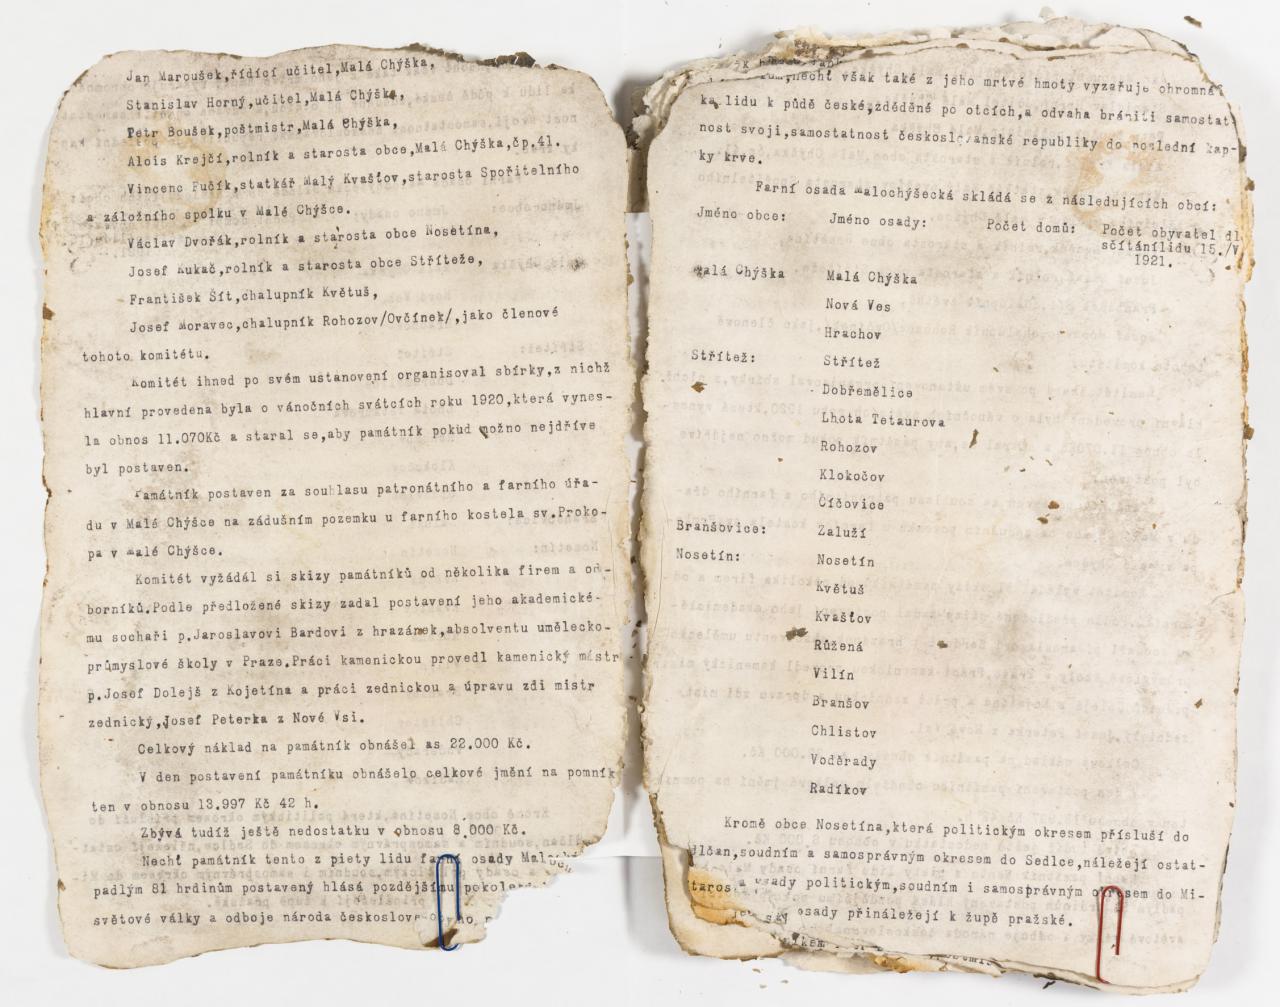 Jan Maroušek,řídící učitel,Malá Chýška,
Stanislav Horný,učitel,Malá Chýška,
Petr Boušek,poštmistr,Malá Chýška,
Alois Krejčí,rolník a starosta obce,Malá Chýška,čp.41.
Vincenc Fučík,statkář Malý Kvašťov,starosta Spořitelního
a záložního spolku v Malé Chýšce.
Václav Dvořák,rolník a starosta obce Nosetína,
Josef Kukač,rolník a starosta obce Stříteže,
František Šít,chalupník Květuš,
Josef Moravec,chalupník Rohozov/Ovčínek/,jako členové
tohoto komitétu.
Komitét ihned po svém ustanovení organisoval sbírky,z nichž
hlavní provedena byla o vánočních svátcích roku 1920,která vynes-
la obnos 11.070Kč a staral se,aby památník pokud možno nejdříve
byl postaven.
Památník postaven za souhlasu patronátního a farního úřa-
du v Malé Chýšce na zádušním pozemku u farního kostela sv.Proko-
pa v Malé Chýšce.
Komitét vyžádál si skizy památníků od několika firem a od-
borníků.Podle předložené skizy zadal postavení jeho akademické-
mu sochaři p.Jaroslavovi Bardovi z hrazánek,absolventu umělecko-
průmyslové školy v Praze.Práci kamenickou provedl kamenický mistr
p.Josef Dolejš z Kojetína a práci zednickou a úpravu zdi mistr
zednický,Josef Peterka z Nové Vsi.
Celkový náklad na památník obnášel as 22.000 Kč.
V den postavení památníku obnášelo celkové jmění na pomník
ten v obnosu 13.997 Kč 42 h.
Zbývá tudíž ještě nedostatku v obnosu 8.000 Kč.
Nechť památník tento z piety lidu farní osady
padlým 81 hrdinům postavený hlásá pozdějšímu
světové války a odboje národa
nechť však také z jeho mrtvé hmoty vyzařuje ohromná
ka lidu k půdě české,zděděné po otcích,a odvaha brániti samostat
nost svoji,samostatnost československé republiky do poslední kap-
ky krve.
Farní osada Malochýšecká skládá se z následujících obcí:
Jméno obce: Jméno osady: Počet domů: Počet obyvatel dl
sčítánílidu 15./V
1921.
Malá Chýška Malá Chýška
Nová Ves
Hrachov
Střítež: Střítež
Dobřemělice
Lhota Tetaurova
Rohozov
Klokočov
Číčovice
Branšovice: Zaluží
Nosetín: Nosetín
Květuš
Kvašťov
Růžená
Vilín
Branšov
Chlistov
Voděrady
Radíkov
Kromě obce Nosetína,která politickým okresem přísluší do
soudním a samosprávným okresem do Sedlce,náležejí ostat-
osady politickým,soudním i samosprávným okresem do Mi-
osady přináležejí k župě pražské.